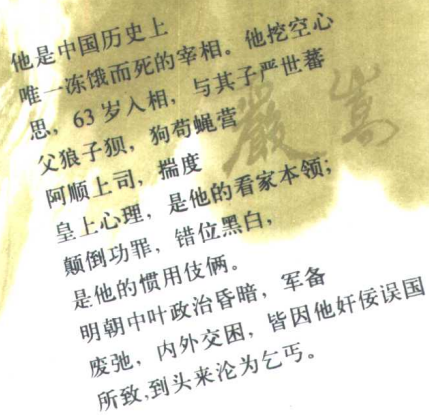 他是中国历史上
唯一冻饿而死的宰相。他挖空心
思，63岁入相，与其子严世蕃
父狼子狈，狗苟蝇营
阿顺上司，揣度
皇上心理，是他的看家本领；
颠倒功罪，错位黑白，
是他的惯用伎俩。
明朝中叶政治昏暗，军备
废弛，内外交困，皆因他奸佞误国
所致，到头来沦为乞丐。
嚴嵩